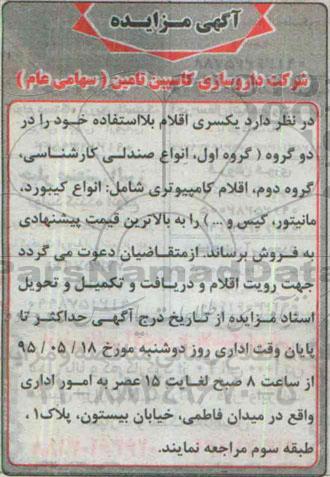 آگهی مزایده
شرکت داروسازی کاسپین تامین ( سهامی عام )
در نظر دارد یکسری اقلام بلااستفاده خود را در
دو گروه ( گروه اول، انواع صندلی کارشناسی،
گروه دوم، اقلام کامپیوتری شامل: انواع کیبورد،
مانیتور، کیس و ... ) را به بالاترین قیمت پیشنهادی
به فروش برساند. ازمتقاضیان دعوت می گردد
جهت رویت اقلام و دریافت و تکمیل و تحویل
اسناد مزایده از تاریخ درج آگهی حداکثر تا
پایان وقت اداری روز دوشنبه مورخ ۱۸ / ۰۵ / ۹۵
از ساعت ۸ صبح لغایت ۱۵ عصر به امور اداری
واقع در میدان فاطمی، خیابان بیستون، پلاک۱ ،
طبقه سوم مراجعه نمایند.
ParsNamadData